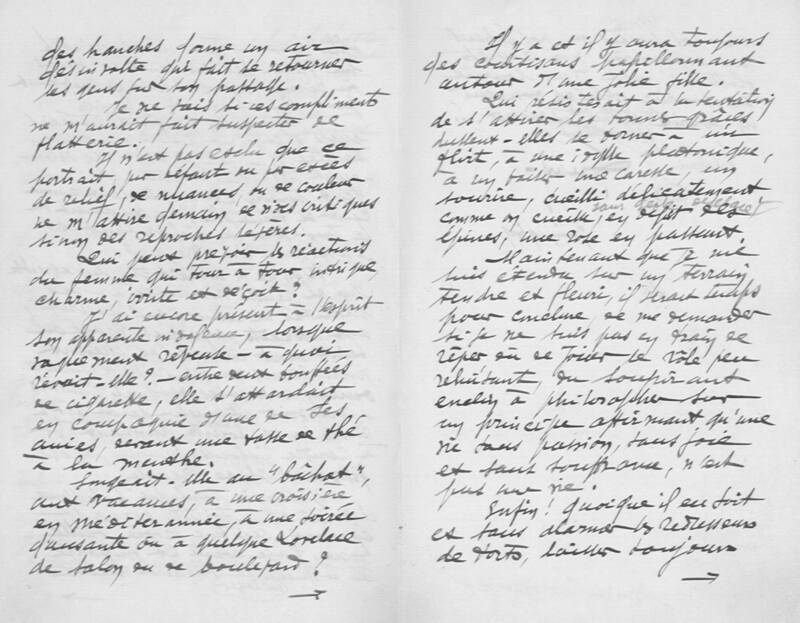 des hanches forme un air
désinvolte qui fait se retourner
les gens sur son passage.
Je ne sais si ces compliments
ne m'aurait fait suspecter de
flatterie.
Il n'est pas exclu que ce
portrait, par défaut ou par excès
de relief, de nuances, ou de couleur
ne m'attire demain de vives critiques
sinon des reproches légères.
Qui peut prévoir les réactions
du femme qui tour à tour intrigue,
charme, irrite et déçoit ?
J'ai encore présent à l'esprit
son apparente indolence, lorsque
vaguement rêveuse - à quoi
rêvait-elle ? - entre deux bouffées
de cigarette, elle s'attardait
en compagnie d'une de ses
amies, devant une tasse de thé
à la menthe.
Songeait-elle au "bachot",
aux vacances, à une croisière
en méditerrannée, à une soirée
dansante ou à quelque Lovelace
de salon ou de boulevard ?
→
Il y a et il y aura toujours
des courtisans papillonnant
autour d'une jolie fille.
Qui résisterait à la tentation
de s'attirer les bonnes grâces
dussent-elles se borner à un
flirt, à une idylle platonique,
à un baiser une caresse, un
sourire, cueilli délicatement
comme on cueille en dépit des
épines, une rose en passant.
Maintenant que je me
suis étendu sur un terrain
tendre et fleuri, il serait temps
pour conclure, de me demander
si je ne suis pas en train de
rêver ou de jouer le rôle peu
reluisant, du soupirant
enclin à philosopher sur
un principe affirmant qu'une
vie sans passion, sans joie
et sans souffrance, n'est
pas une vie.
Enfin ! quoique il en soit
et sans alarmer les redresseurs
de torts, laisser toujours
→